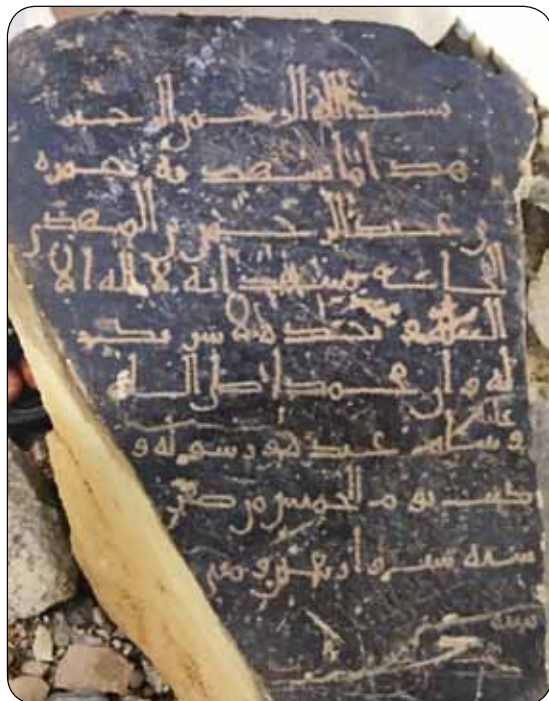 بسم الله الرحمن الرحيم
هذا ما يشهد به حمزه
بن عبد الرحمن بن
يشهد انه لا اله الا
الله وحده لا شريك
له وان محمدا صلى الله
عليه
وسلم عبده ورسوله و
كتب يوم الخميس من صفر
سنه واربعين